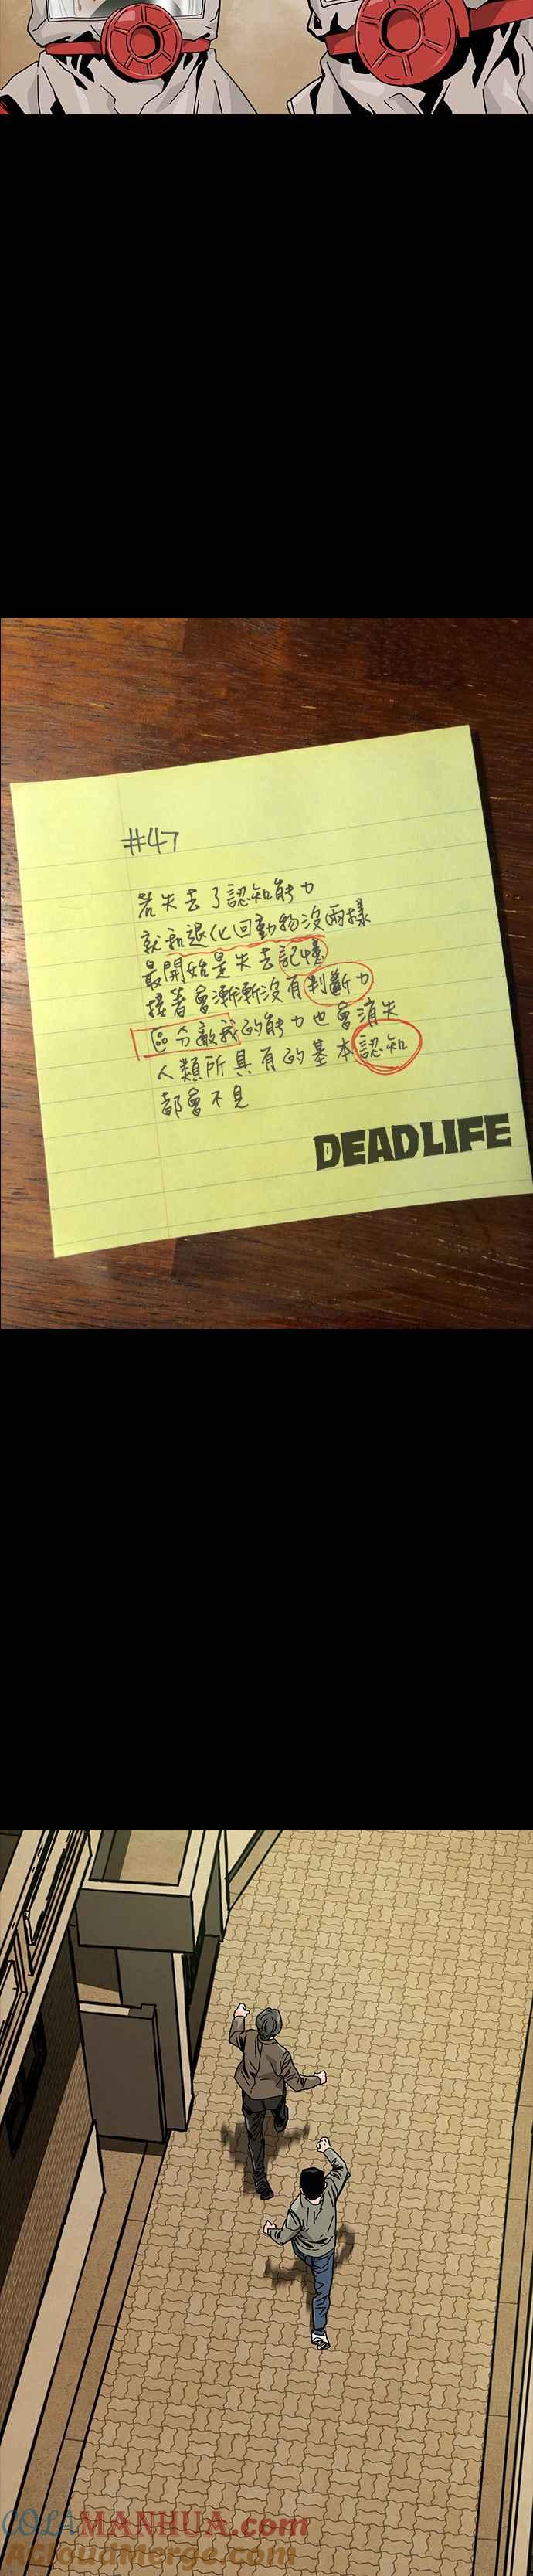 #47
若失去了認知能力
就和退化回動物沒兩樣
最開始是失去記憶
接著會漸漸沒有判斷力
區分敵我的能力也會消失
人類所具有的基本認知
都會不見
DEAD LIFE
COLAMANHUA.com
AcloudMerge.com